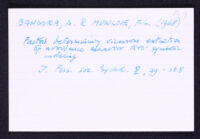 BANDURA, A. & MENLOVE, F.L. (1968)
Factors determining vicarious extinction
of avoidance behavior through symbolic
modeling
J. Pers. soc. Psychol. 8, 99-108